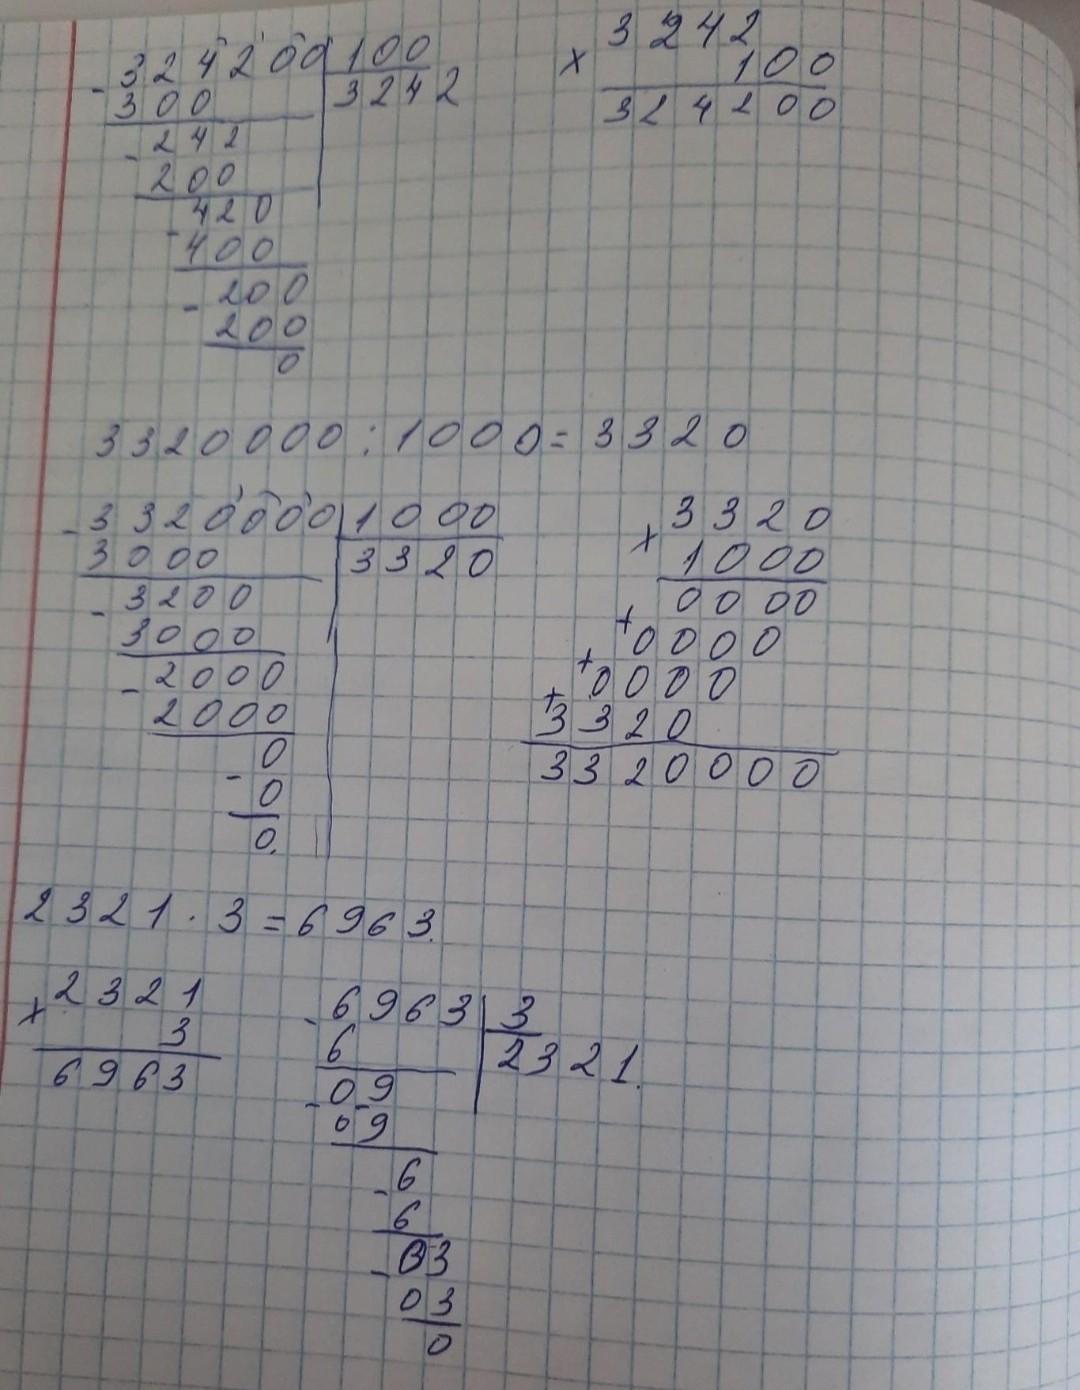 - 324200 | 100
300 | 3242
- 242
200
- 420
400
- 200
200
0
× 3242
100
324200
3320000 : 1000 = 3320
- 3320000 | 1000
3000 | 3320
- 3200
3000
- 2000
2000
0
- 0
0.
× 3320
1000
0000
+ 0000
+ 0000
+ 3320
3320000
2321 · 3 = 6963.
× 2321
3
6963
- 6963 | 3
6 | 2321.
- 09
09
- 6
6
- 03
03
0